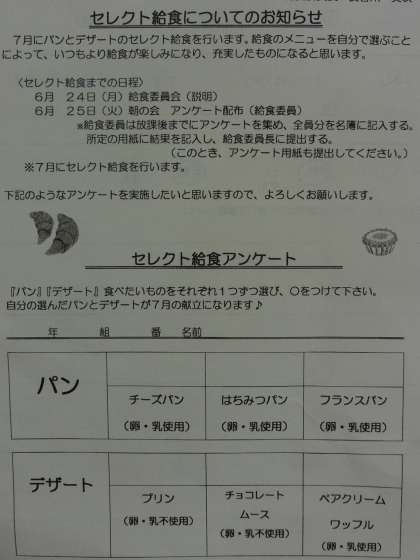 セレクト給食についてのお知らせ
７月にパンとデザートのセレクト給食を行います。給食のメニューを自分で選ぶこと
によって、いつもより給食が楽しみになり、充実したものになると思います。
〈セレクト給食までの日程〉
６月　２４日（月）給食委員会（説明）
６月　２５日（火）朝の会　アンケート配布（給食委員）
※給食委員は放課後までにアンケートを集め、全員分を名簿に記入する。
所定の用紙に結果を記入し、給食委員長に提出する。
（このとき、アンケート用紙も提出してください。）
※７月にセレクト給食を行います。
下記のようなアンケートを実施したいと思いますので、よろしくお願いします。
セレクト給食アンケート
『パン』『デザート』食べたいものをそれぞれ１つずつ選び、〇をつけて下さい。
自分の選んだパンとデザートが７月の献立になります♪
年　　組　　番　名前
パン
チーズパン　はちみつパン　フランスパン
（卵・乳使用）　（卵・乳使用）　（卵・乳使用）
デザート
プリン　チョコレート　ペアクリーム
ムース　ワッフル
（卵・乳不使用）　（卵・乳不使用）　（卵・乳使用）